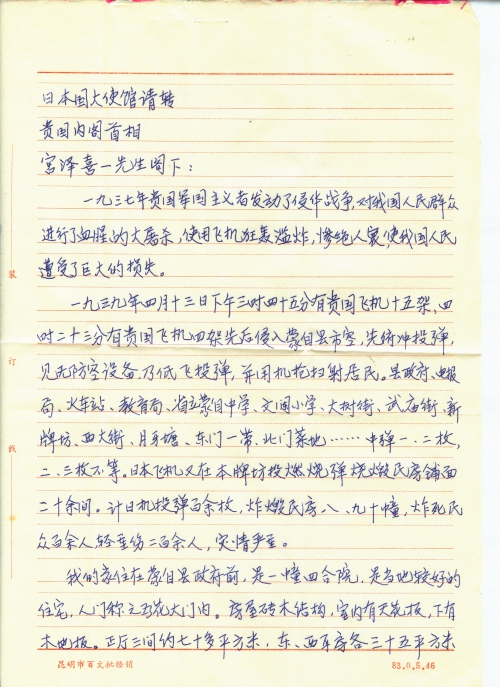 日本国大使馆请转
贵国内阁首相
宫泽喜一先生阁下：
一九三七年贵国军国主义者发动了侵华战争，对我国人民群众
进行了血腥的大屠杀，使用飞机狂轰滥炸，惨绝人寰，使我国人民
遭受了巨大的损失。
一九三九年四月十三日下午三时四十五分有贵国飞机十五架，四
时二十三分有贵国飞机四架先后侵入蒙自县市空，先俯冲投弹，
见无防空设备乃低飞投弹，并用机枪扫射居民。县政府、电报
局、火车站、教育局、省立蒙自中学、文澜小学、大树街、武庙街、新
牌坊、西大街、月牙塘、东门一带、北门菜地……中弹一、二枚，
二、三枚不等。日本飞机又在本牌坊投燃烧弹烧毁民房铺面
二十余间。计日机投弹百余枚，炸毁民房八、九十幢，炸死民
众百余人，轻重伤二百余人，灾情严重。
我的家住在蒙自县政府前，是一幢四合院，是当地较好的
住宅，人们称之为花大门内。房屋砖木结构，室内有天花板，下有
木地板。正房三间约七十多平方米，东、西耳房各三十五平方米
装
订
线
昆明市百文批经销
83.0.5.46